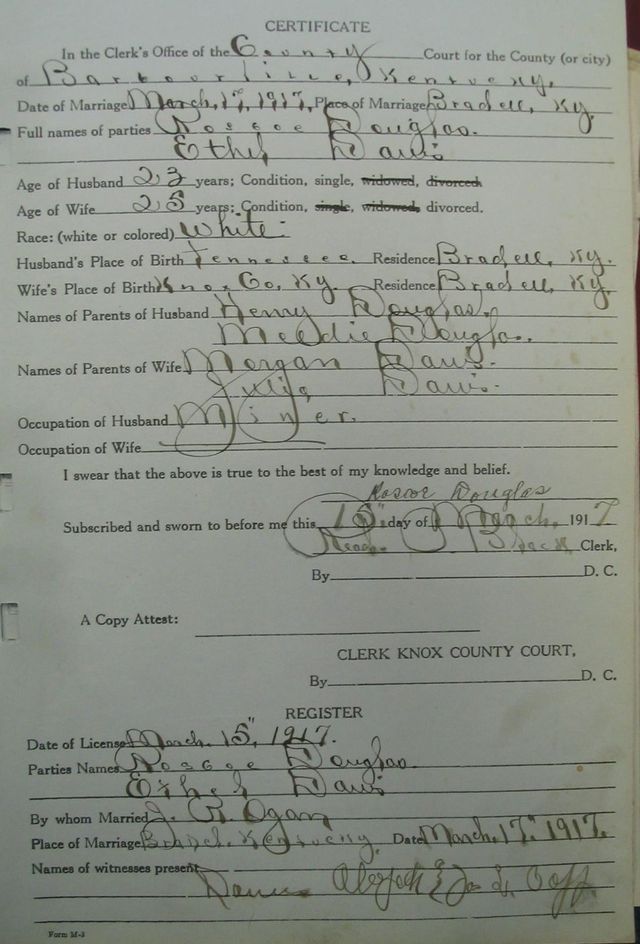 CERTIFICATE
In the Clerk's Office of the County Court for the County (or city)
of Barbourville, Kentucky.
Date of Marriage March, 17, 1917, Place of Marriage Bradell, Ky.
Full names of parties Roscoe Douglas.
Ethel Davis
Age of Husband 23 years; Condition, single, widowed, divorced
Age of Wife 25 years; Condition, single, widowed, divorced.
Race: (white or colored) White.
Husband's Place of Birth Tennessee. Residence Bradell, Ky.
Wife's Place of Birth Knox Co, Ky. Residence Bradell, Ky.
Names of Parents of Husband Henry Douglas,
Douglas.
Names of Parents of Wife Morgan Davis.
Julia Davis.
Occupation of Husband Miner.
Occupation of Wife
I swear that the above is true to the best of my knowledge and belief.
Roscoe Douglas
Subscribed and sworn to before me this 15" day of March, 1917
Read P. Black Clerk,
By D. C.
A Copy Attest:
CLERK KNOX COUNTY COURT,
By D. C.
REGISTER
Date of License March 15", 1917.
Parties Names Roscoe Douglas
Ethel Davis
By whom Married J. R. Ogan
Place of Marriage Kentucky, Date March, 17" 1917.
Names of witnesses present
Form M-3